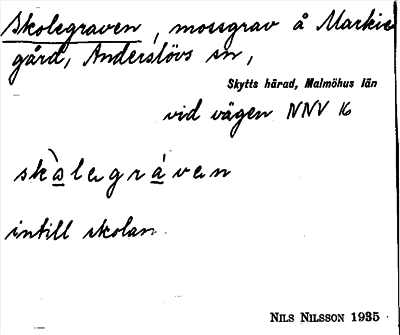 Skolegraven, mossgrav å Markie
gård, Anderslövs sn,
Skytts härad, Malmöhus län
vid vägen NNV 16
skàlegráven
intill skolan
NILS NILSSON 1935